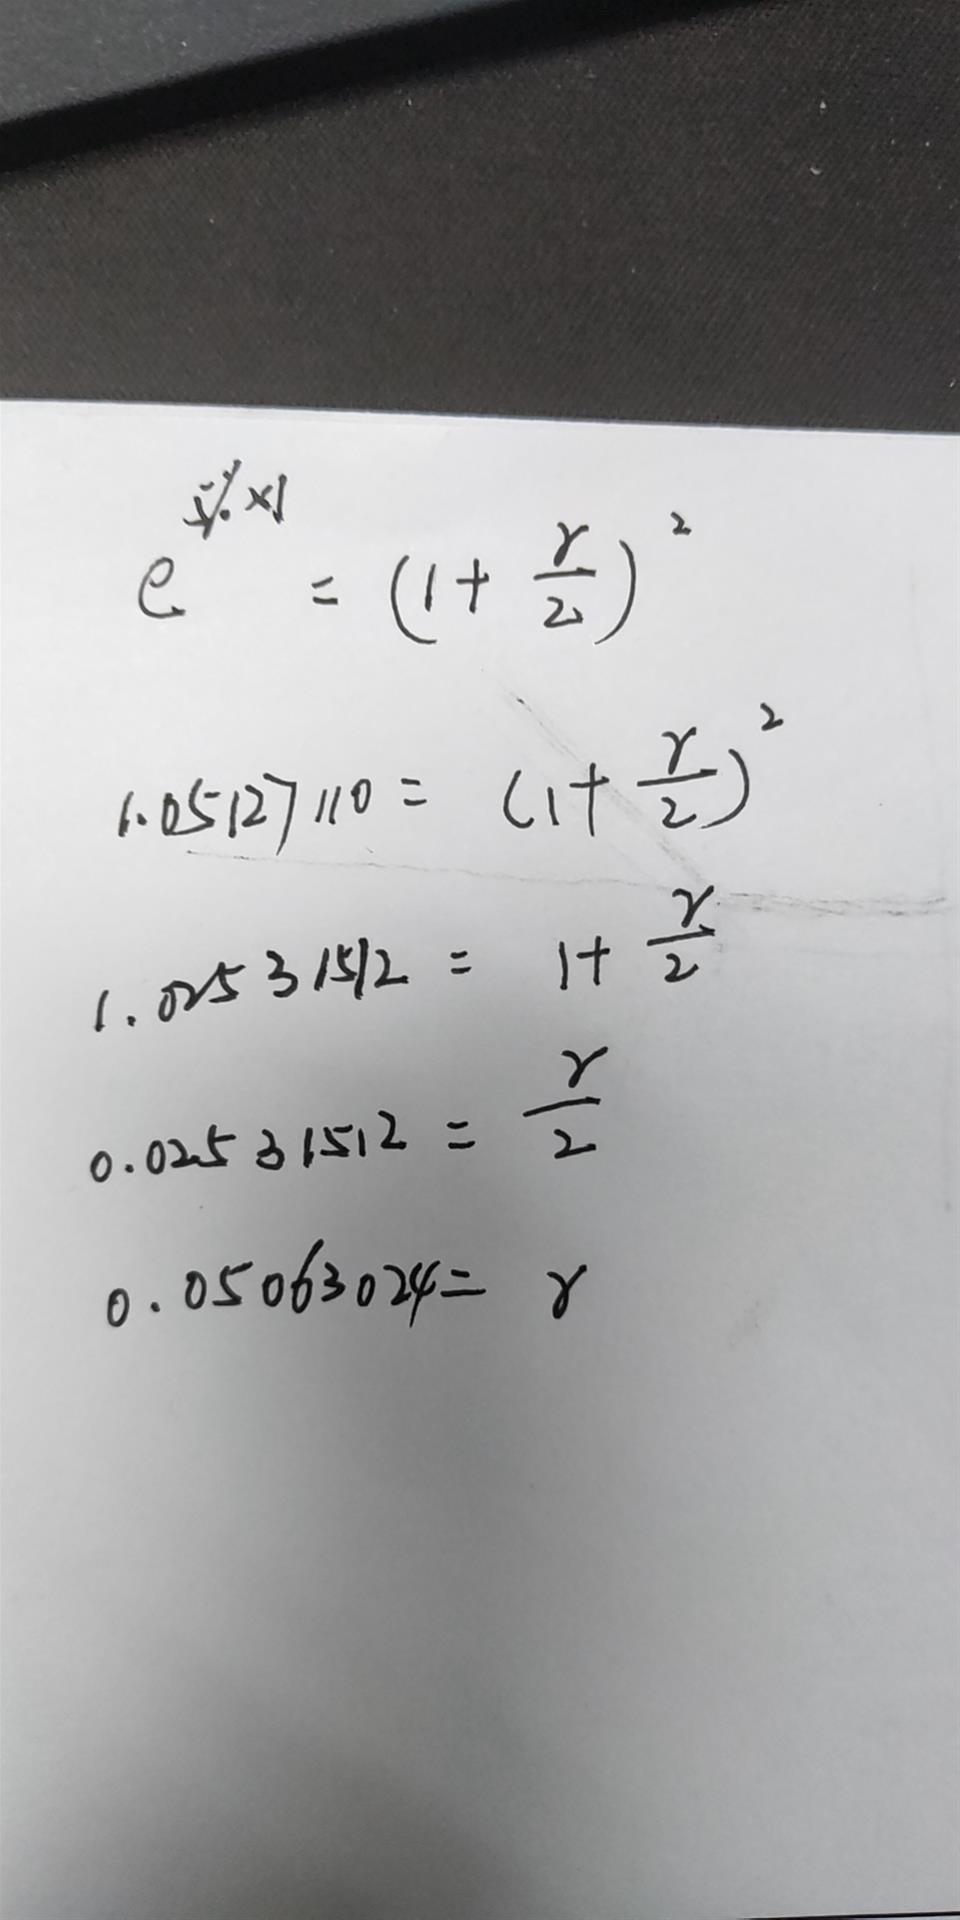 e^{5%×1} = (1 + r/2)^2
1.05127110 = (1 + r/2)^2
1.02531512 = 1 + r/2
0.02531512 = r/2
0.05063024 = r